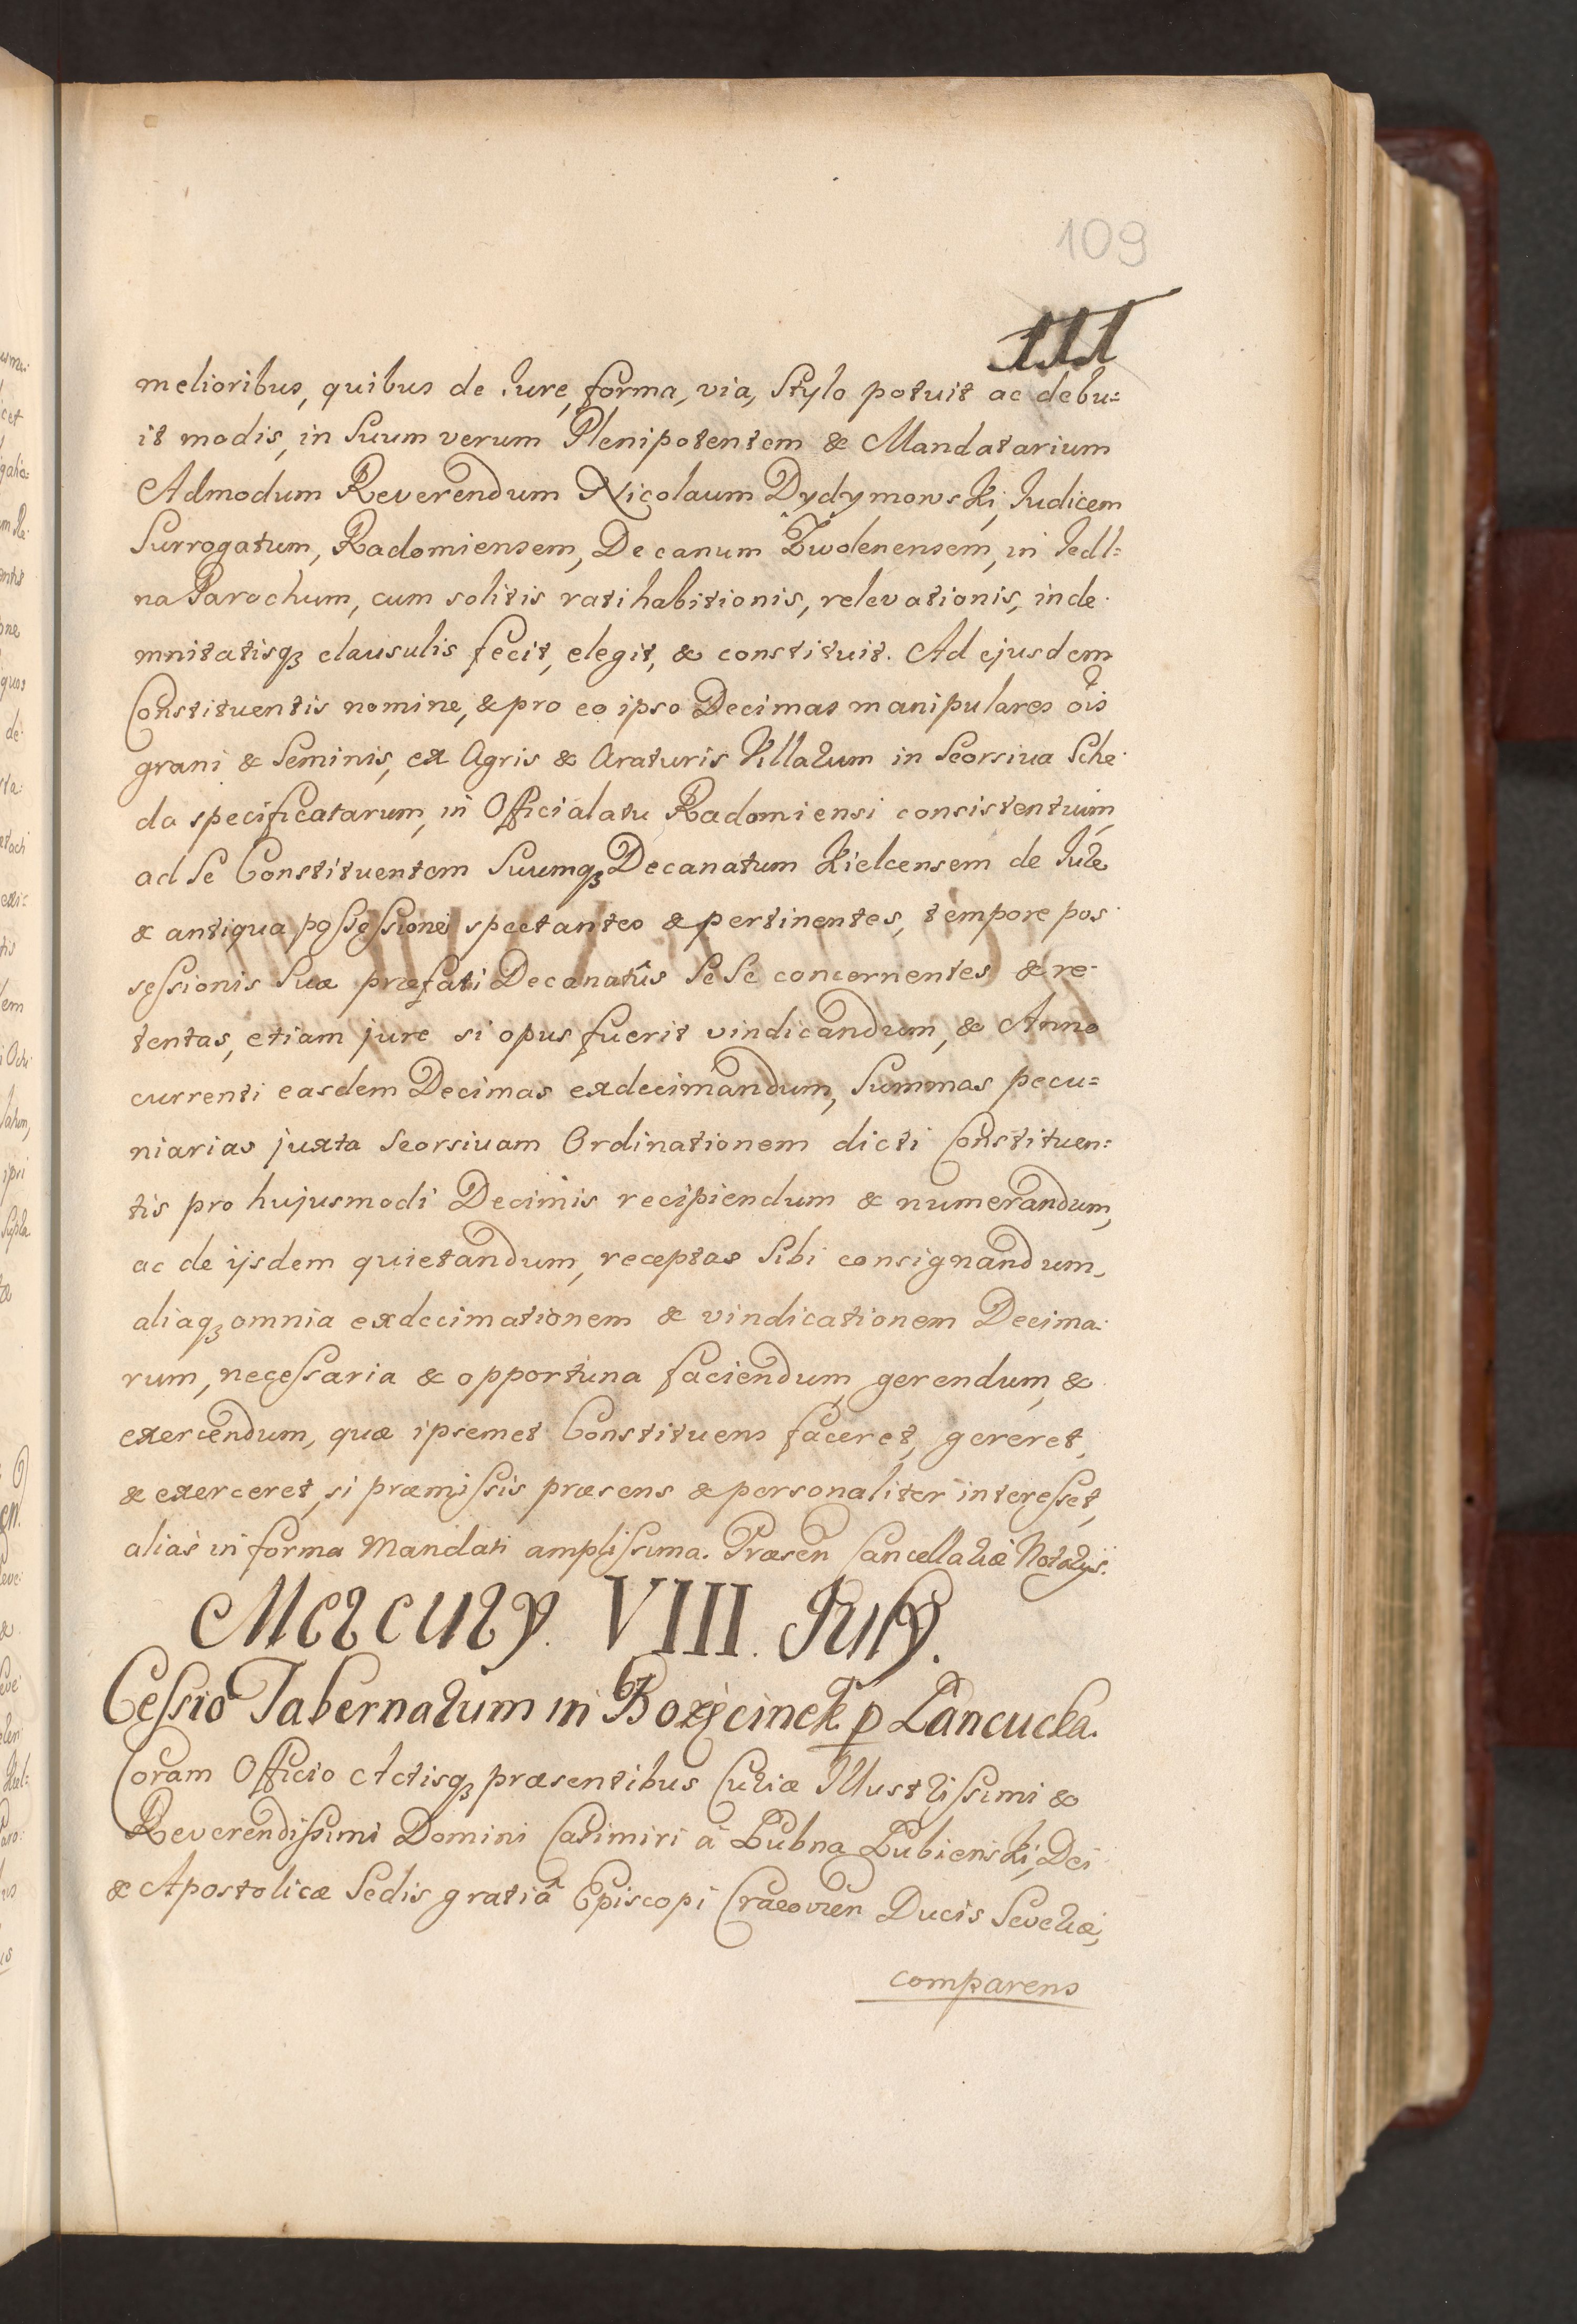 109
111
melioribus, quibus de Iure, forma, via, Stylo potuit ac debu=
it modis, in Suum verum Plenipotentem & Mandatarium
Admodum Reverendum Nicolaum Dydymowski, Iudicem
Surrogatum, Radomiensem, Decanum Zwolenensem, in Iedl=
na Parochum, cum solitis ratihabitionis, relevationis, inde-
mnitatisqꝫ clausulis fecit, elegit, & constituit. Ad ejusdem
Constituentis nomine, & pro eo ipso Decimas manipulares oīs
grani & Seminis, ex Agris & Araturis Villarum in Seorsiva Sche-
da specificatarum, in Officialatu Radomiensi consistentium,
ad Se Constituentem Suumqꝫ Decanatum Kielcensem de Iure
& antiqua possessione spectantes & pertinentes, tempore pos-
sessionis Suæ præfati Decanatûs Se Se concernentes & re-
tentas, etiam jure si opus fuerit vindicandum, & Anno
currenti easdem Decimas exdecimandum, Summas pecu=
niarias juxta Seorsivam Ordinationem dicti Constituen=
tis pro hujusmodi Decimis recipiendum & numerandum,
ac de ijsdem quietandum, receptas Sibi consignandum,
aliaqꝫ omnia exdecimationem & vindicationem Decima-
rum, necessaria & opportuna faciendum, gerendum, &
exercendum, quæ ipsemet Constituens faceret, gereret,
& exerceret, si præmissis præsens & personaliter interesset,
aliàs in forma Mandati amplissima. Præsen Cancellariæ Notarijs.
Mercurij. VIII. Julij.
Cessio Tabernarum in Bozęcinek p Łancucka.
Coram Officio Actisqꝫ præsentibus Curiæ Illustrissimi &
Reverendissimi Domini Casimiri à Łubna Łubienski, Dei
& Apostolicæ Sedis gratiâ Episcopi Cracovien Ducis Severiæ,
comparens